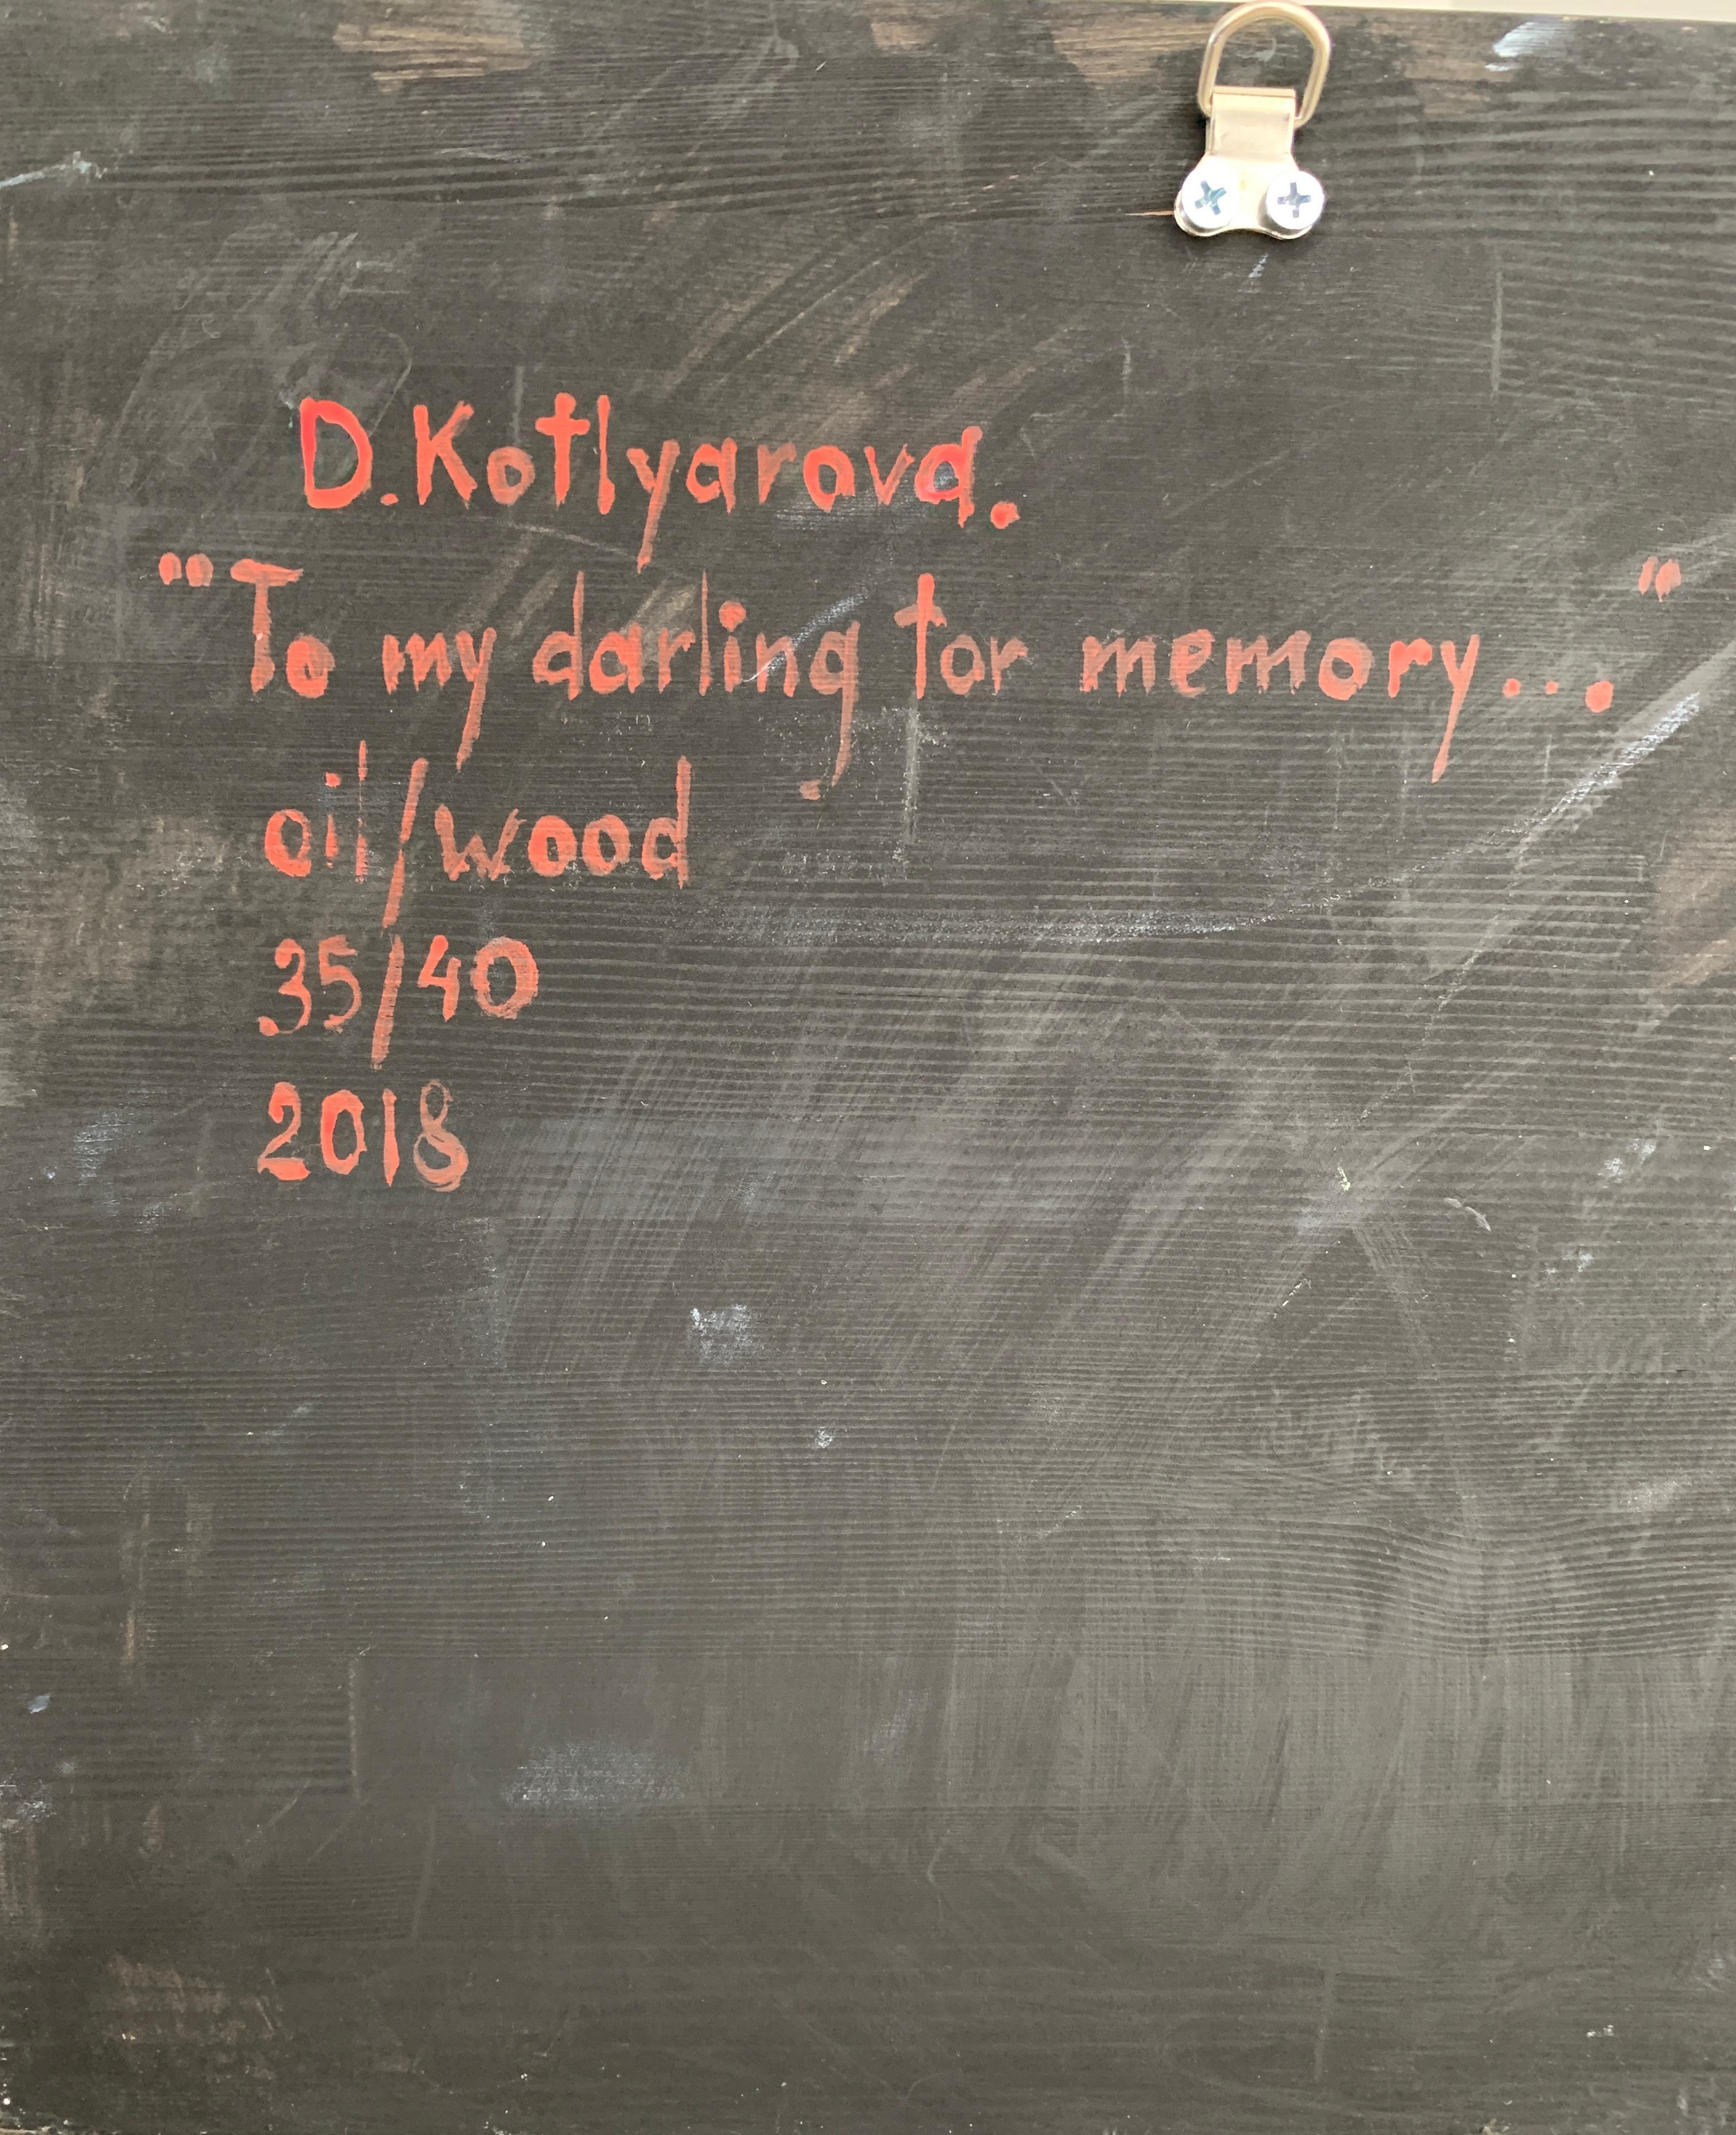 D. Kotlyarova.
"To my darling for memory..."
oil/wood
35/40
2018